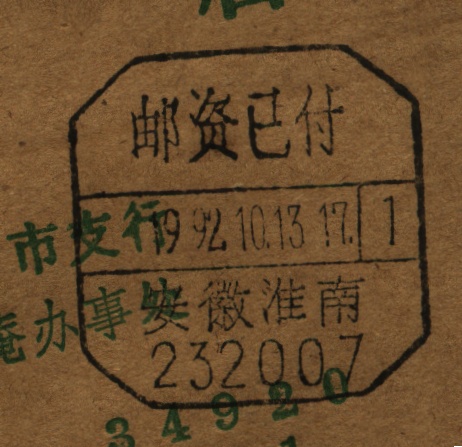 邮资已付
1992.10.13 17. 1
市支行
安徽淮南
庵办事处
232007
34920